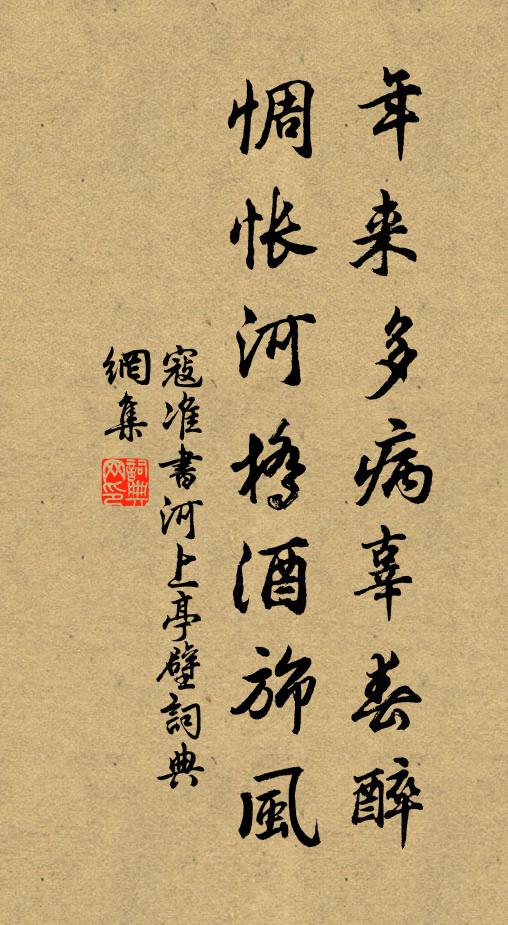 年来多病辜春醉
惆怅河桥酒旆风
寇准書河上亭壁詞典
網集
詞典網印